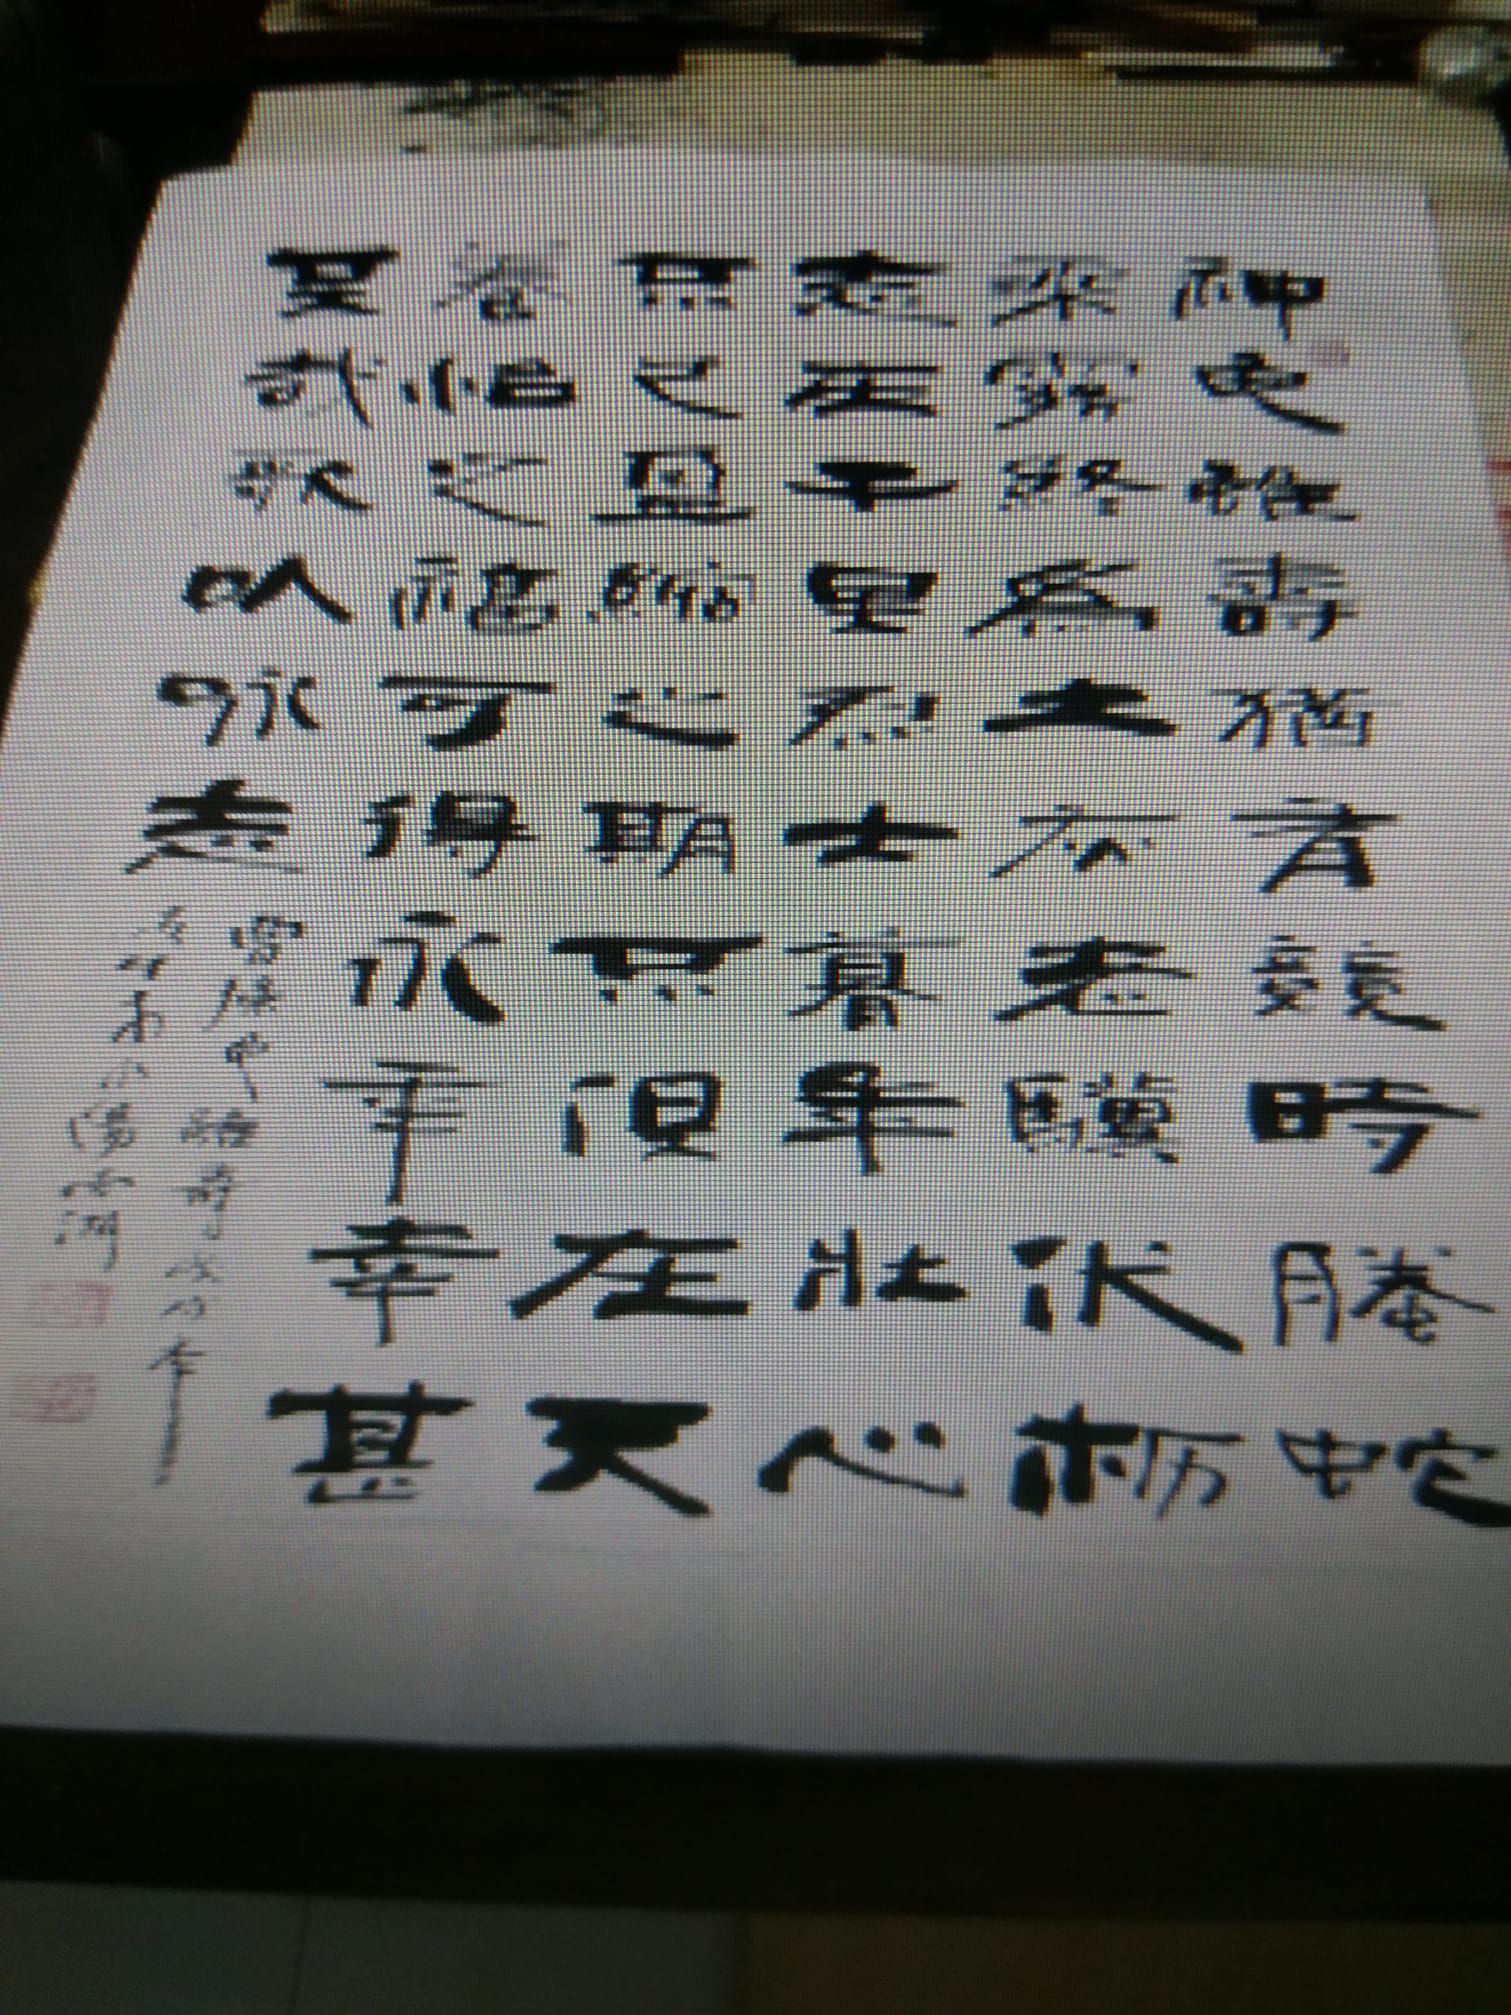 神龟雖壽猶有競時騰蛇
乘霧終為土灰老驥伏枥
志在千里烈士暮年壯心
不已盈縮之期不但在天
養怡之福可得永年幸甚
至哉歌以咏志
曹操龟雖壽